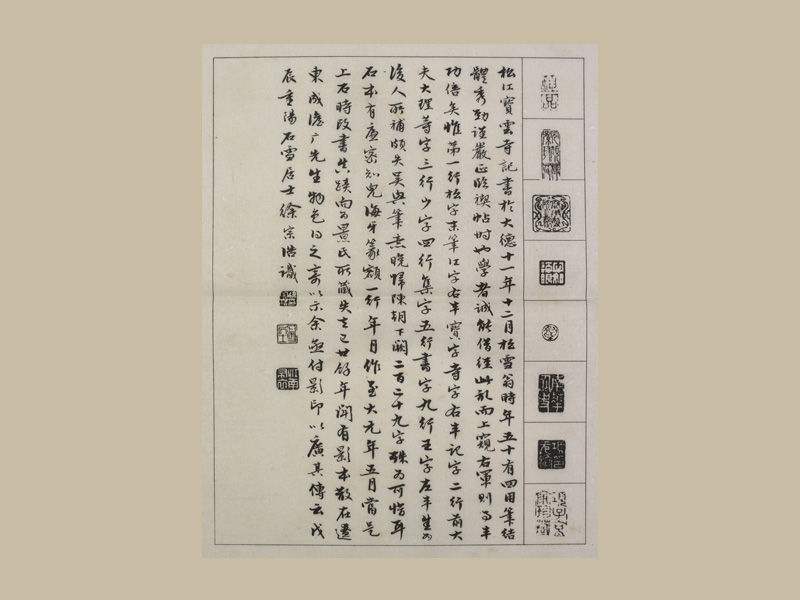 松江寶雲寺記書於大德十一年十二月松雪翁時年五十有四用筆結
體秀勁謹嚴正臨禊帖時也學者誠能借徑此訊而上窺右軍則事半
功倍矣惟第一行松字末筆江字右半寶字寺字右半記字二行前大
夫大理等字三行少字四行集字五行書字九行王字左半生为
後人所補頗失吳興筆意晚歸陳朝下闕二百二十九字殊为可惜耳
石本有唐密知兒海牙篆額一行年月作至大元年五月當是
上石時改書真蹟向为景氏所藏失去已廿餘年聞有影本散在遼
東成澹厂先生物色得之寄以示余亟付影印以廣其傳云戊
辰重陽石雪居士徐宗浩識